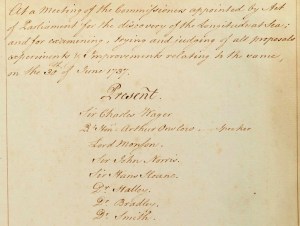 At a Meeting of the Commissioners appointed by Act
of Parliament for the discovery of the Longitude at Sea;
and for examining, trying and judging of all proposals
experiments & Improvements relating to the same,
in the 30th of June 1737.
Present.
Sir Charles Wager
Rt. Hon. Arthur Onslow - Speaker
Lord Monson
Sir John Norris
Sir Hans Sloane
Dr. Halley
Dr. Bradley
Dr. Smith